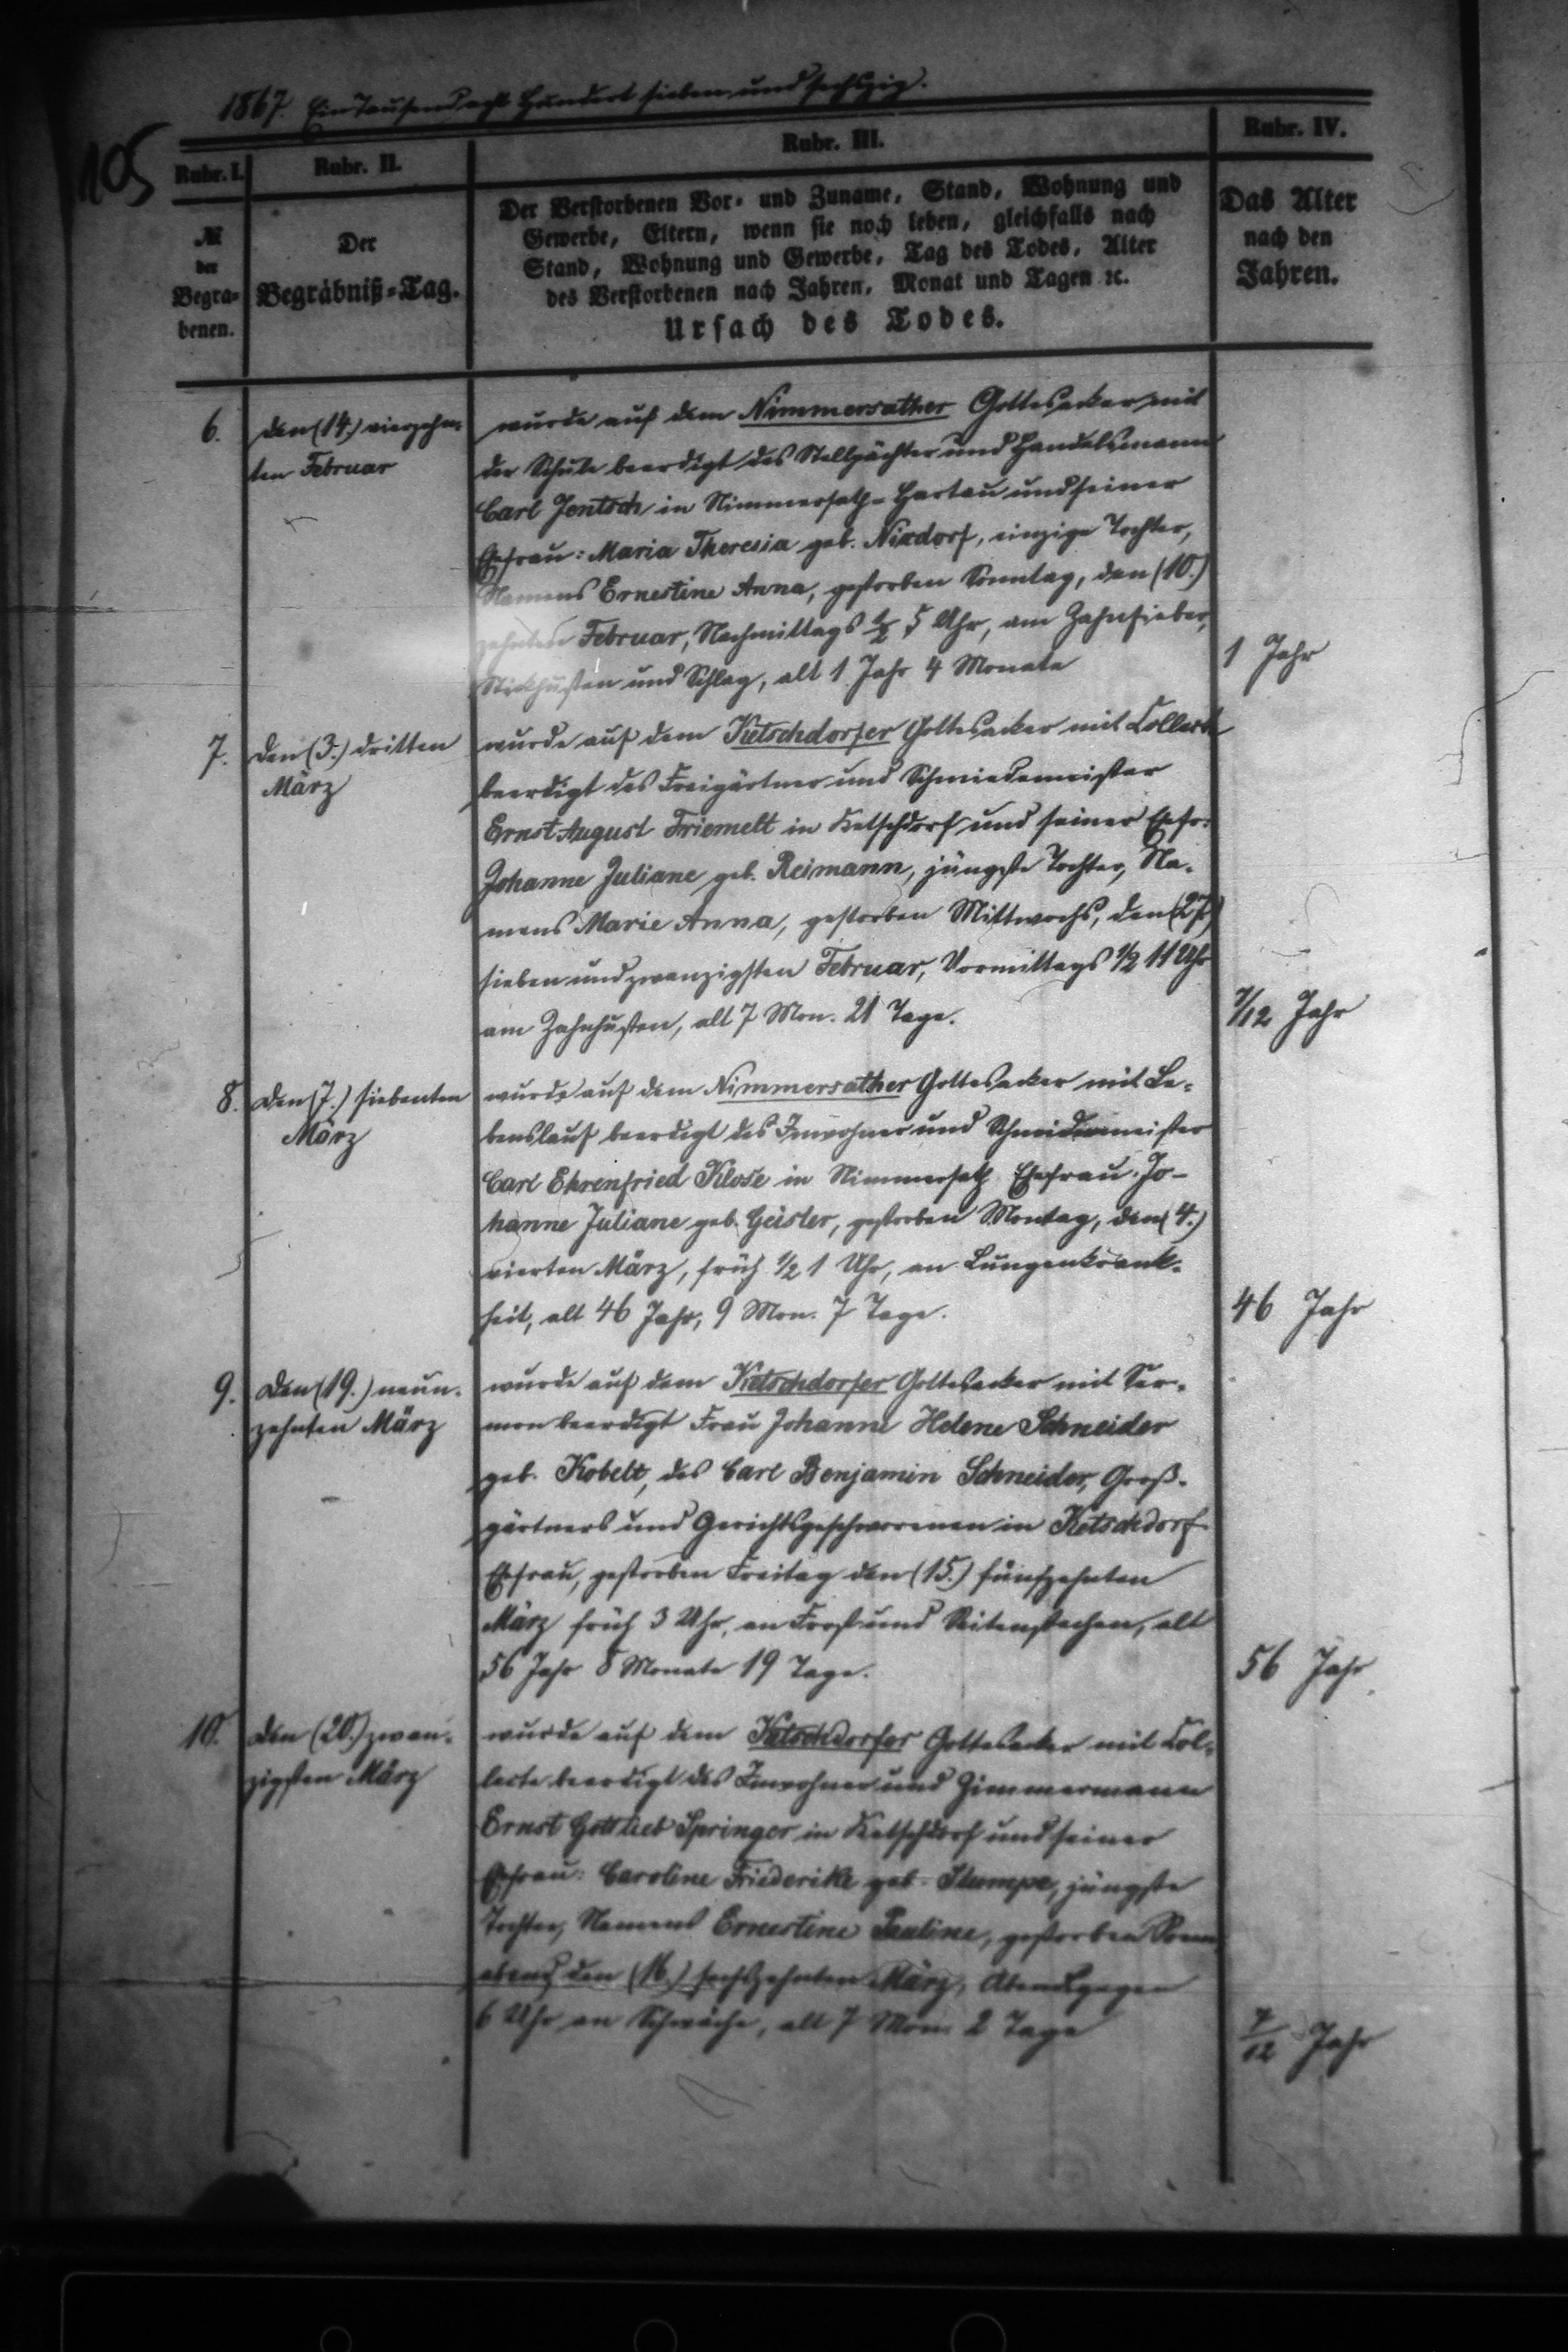 1867. Ein Tausend acht Hundert sieben und sechszig.
105
Rubr. I.
Rubr. II.
Rubr. III.
Rubr. IV.
№
der
Begra-
benen.
Der
Begräbniß-Tag.
Der Verstorbenen Vor- und Zuname, Stand, Wohnung und
Gewerbe, Eltern, wenn sie noch leben, gleichfalls nach
Stand, Wohnung und Gewerbe, Tag des Todes, Alter
des Verstorbenen nach Jahren, Monat und Tagen ꝛc.
Ursach des Todes.
Das Alter
nach den
Jahren.
6.
den (14.) vierzehn-
ten Februar
wurde auf dem Nimmersather Gottesacker mit
der Schule beerdigt des Stellpächter und Handelsmann
Carl Jentsch in Nimmersath-Hartau und seiner
Ehefrau: Maria Theresia geb. Nixdorf, einzige Tochter,
Namens Ernestine Anna, gestorben Sonntag, den (10.)
zehnten Februar, Nachmittags ½ 5 Uhr, am Zahnfieber,
Stickhusten und Schlag, alt 1 Jahr 4 Monate
1 Jahr
7.
den (3.) dritten
März
wurde auf dem Ketschdorfer Gottesacker mit Collecte
beerdigt des Freigärtner und Schmiedemeister
Ernst August Friemelt in Ketschdorf und seiner Ehefr:
Johanne Juliane geb. Reimann, jüngste Tochter, Na-
mens Marie Anna, gestorben Mittwochs, den (27.)
sieben und zwanzigsten Februar, Vormittags ½ 11 Uhr
am Zahnhusten, alt 7 Mon. 21 Tage.
7/12 Jahr
8.
den (7.) siebenten
März
wurde auf dem Nimmersather Gottesacker mit Le-
benslauf beerdigt des Inwohner und Schneidermeister
Carl Ehrenfried Klose in Nimmersath Ehefrau Jo-
hanne Juliane geb. Geisler, gestorben Montag, den (4.)
vierten März, früh ½ 1 Uhr, an Lungenkrank-
heit, alt 46 Jahr, 9 Mon. 7 Tage.
46 Jahr
9.
den (19.) neun-
zehnten März
wurde auf dem Ketschdorfer Gottesacker mit Ser-
mon beerdigt Frau Johanne Helene Schneider
geb. Kobelt, des Carl Benjamin Schneider, Groß-
gärtners und Gerichtsgeschworenen in Ketschdorf
Ehefrau, gestorben Freitag den (15.) fünfzehnten
März früh 3 Uhr, an Frost und Seitenstechen, alt
56 Jahr 8 Monate 19 Tage.
56 Jahr
10.
den (20.) zwan-
zigsten März
wurde auf dem Ketschdorfer Gottesacker mit Col-
lecte beerdigt des Inwohner und Zimmermann
Ernst Gottlieb Springer in Ketschdorf und seiner
Ehefrau: Caroline Friederike geb. Stumpe, jüngste
Tochter, Namens Ernestine Pauline, gestorben Sonn-
abend den (16.) sechszehnten März, Abends gegen
6 Uhr an Schwäche, alt 7 Mon. 2 Tage
7/12 Jahr